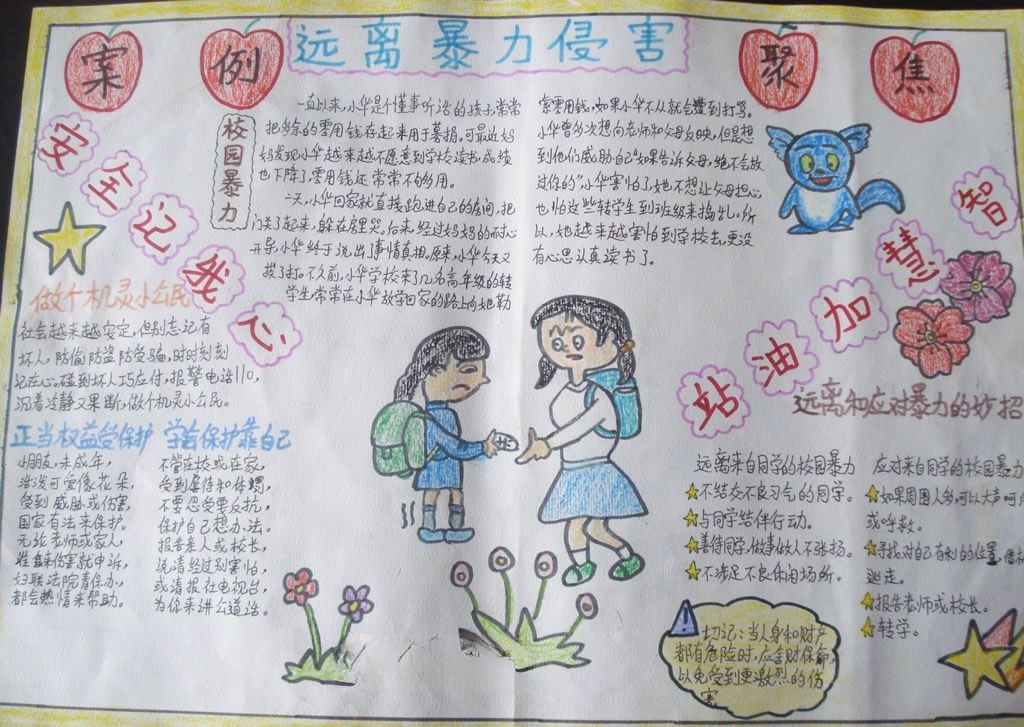 远离暴力侵害
案例
聚焦
安全记我心
校园暴力
一直以来,小华是个懂事听话的孩子,常常
把多余的零用钱存起来用于募捐。可最近妈
妈发现小华越来越不愿意到学校读书,成绩
也下降了,零用钱还常常不够用。
一天,小华回家就直接跑进自己的房间,把
门关了起来,躲在屋里哭。后来,经过妈妈的耐心
开导,小华终于说出事情真相。原来,小华今天又
挨了打。不久前,小华学校来了几名高年级的转
学生,常常在小华放学回家的路上向她勒
索零用钱,如果小华不从就会遭到打骂。
小华曾多次想向老师和父母反映,但是想
到他们威胁自己"如果告诉父母,绝不会放
过你的"小华害怕了,她不想让父母担心
也怕这些转学生到班级来捣乱。所
以,她越来越害怕到学校去,更没
有心思认真读书了。
做个机灵小公民
社会越来越安定,但别忘记有
坏人,防偷防盗防受骗,时时刻刻
记在心。碰到坏人巧应付,报警电话110,
沉着冷静又果断,做个机灵小公民。
正当权益受保护 学会保护靠自己
小朋友,未成年,
活泼可爱像花朵。
受到威胁或伤害,
国家有法来保护。
无论老师或家人,
谁来伤害就申诉,
妇联法院有保办,
都会热情来帮助。
不管在校或在家,
受到虐待和体罚,
不要忍受要反抗,
保护自己想办法。
报告亲人或校长,
说清经过别害怕,
或请报社电视台,
为你来讲公道话。
智慧加油站
远离和应对暴力的妙招
远离来自同学的校园暴力
不结交不良习气的同学。
与同学结伴行动。
善待同学,做事做人不张扬。
不涉足不良休闲场所。
应对来自同学的校园暴力
如果周围人多,可以大声呵
或呼救。
寻找对自己有利的位置,
逃走。
报告老师或校长。
转学。
切记:当人身和财产
都有危险时,应舍财保命,
以免受到更激烈的伤
害。